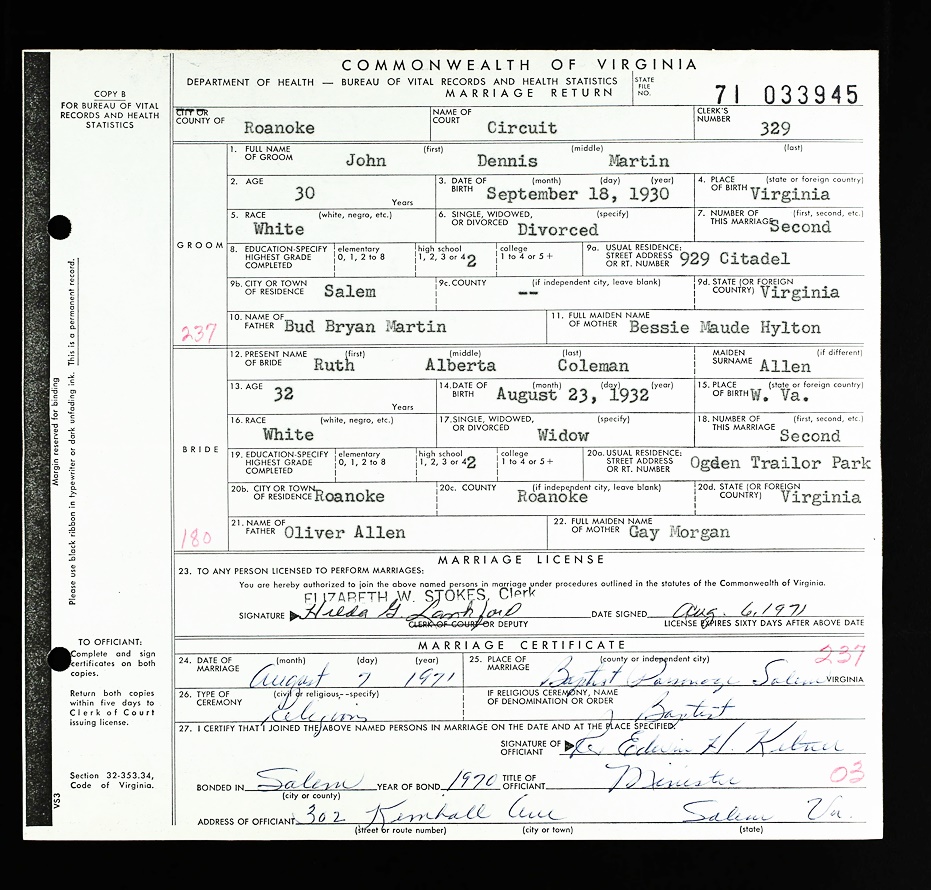 COMMONWEALTH OF VIRGINIA
DEPARTMENT OF HEALTH — BUREAU OF VITAL RECORDS AND HEALTH STATISTICS
MARRIAGE RETURN
STATE FILE NO. 71 033945
COPY B
FOR BUREAU OF VITAL
RECORDS AND HEALTH
STATISTICS
CITY OR
COUNTY OF Roanoke
NAME OF COURT Circuit
CLERK'S NUMBER 329
GROOM
1. FULL NAME OF GROOM (first) (middle) (last)
John Dennis Martin
2. AGE 30 Years
3. DATE OF BIRTH (month) (day) (year) September 18, 1930
4. PLACE OF BIRTH (state or foreign country) Virginia
5. RACE (white, negro, etc.) White
6. SINGLE, WIDOWED, OR DIVORCED (specify) Divorced
7. NUMBER OF THIS MARRIAGE (first, second, etc.) Second
8. EDUCATION-SPECIFY HIGHEST GRADE COMPLETED
elementary 0, 1, 2 to 8
high school 1, 2, 3 or 4 2
college 1 to 4 or 5 +
9a. USUAL RESIDENCE: STREET ADDRESS OR RT. NUMBER 929 Citadel
9b. CITY OR TOWN OF RESIDENCE Salem
9c. COUNTY (if independent city, leave blank) --
9d. STATE (OR FOREIGN COUNTRY) Virginia
10. NAME OF FATHER Bud Bryan Martin
11. FULL MAIDEN NAME OF MOTHER Bessie Maude Hylton
237
BRIDE
12. PRESENT NAME OF BRIDE (first) (middle) (last)
Ruth Alberta Coleman
MAIDEN SURNAME (if different) Allen
13. AGE 32 Years
14. DATE OF BIRTH (month) (day) (year) August 23, 1932
15. PLACE OF BIRTH (state or foreign country) W. Va.
16. RACE (white, negro, etc.) White
17. SINGLE, WIDOWED, OR DIVORCED (specify) Widow
18. NUMBER OF THIS MARRIAGE (first, second, etc.) Second
19. EDUCATION-SPECIFY HIGHEST GRADE COMPLETED
elementary 0, 1, 2 to 8
high school 1, 2, 3 or 4 2
college 1 to 4 or 5 +
20a. USUAL RESIDENCE: STREET ADDRESS OR RT. NUMBER Ogden Trailor Park
20b. CITY OR TOWN OF RESIDENCE Roanoke
20c. COUNTY (if independent city, leave blank) Roanoke
20d. STATE (OR FOREIGN COUNTRY) Virginia
21. NAME OF FATHER Oliver Allen
22. FULL MAIDEN NAME OF MOTHER Gay Morgan
180
MARRIAGE LICENSE
23. TO ANY PERSON LICENSED TO PERFORM MARRIAGES:
You are hereby authorized to join the above named persons in marriage under procedures outlined in the statutes of the Commonwealth of Virginia.
ELIZABETH W. STOKES, Clerk
SIGNATURE Hilda G. Lankford DATE SIGNED Aug. 6, 1971
CLERK OF COURT OR DEPUTY LICENSE EXPIRES SIXTY DAYS AFTER ABOVE DATE
MARRIAGE CERTIFICATE
237
24. DATE OF MARRIAGE (month) (day) (year) August 7 1971
25. PLACE OF MARRIAGE (county or independent city) Baptist Parsonage Salem VIRGINIA
26. TYPE OF CEREMONY (civil or religious--specify) Religious
IF RELIGIOUS CEREMONY, NAME OF DENOMINATION OR ORDER Baptist
27. I CERTIFY THAT I JOINED THE ABOVE NAMED PERSONS IN MARRIAGE ON THE DATE AND AT THE PLACE SPECIFIED:
SIGNATURE OF OFFICIANT Edwin H.
BONDED IN Salem YEAR OF BOND 1970 TITLE OF OFFICIANT Minister
(city or county)
03
ADDRESS OF OFFICIANT 302 Kimball Ave Salem Va.
(street or route number) (city or town) (state)
Margin reserved for binding
Please use black ribbon in typewriter or dark unfading ink. This is a permanent record.
TO OFFICIANT:
Complete and sign
certificates on both
copies.
Return both copies
within five days to
Clerk of Court
issuing license.
Section 32-353.34,
Code of Virginia.
VS3